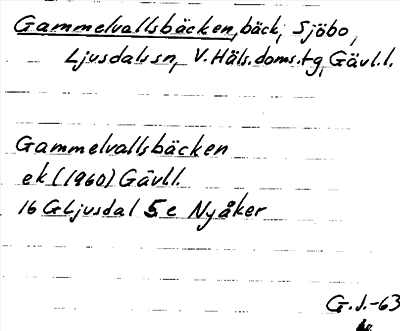 Gammelvallsbäcken, bäck, Sjöbo,
Ljusdals sn, V. Häls. doms. tg, Gävl. l.
Gammelvallsbäcken
ek (1960) Gävl l.
16 G Ljusdal 5 c Nyåker
G. J. -63